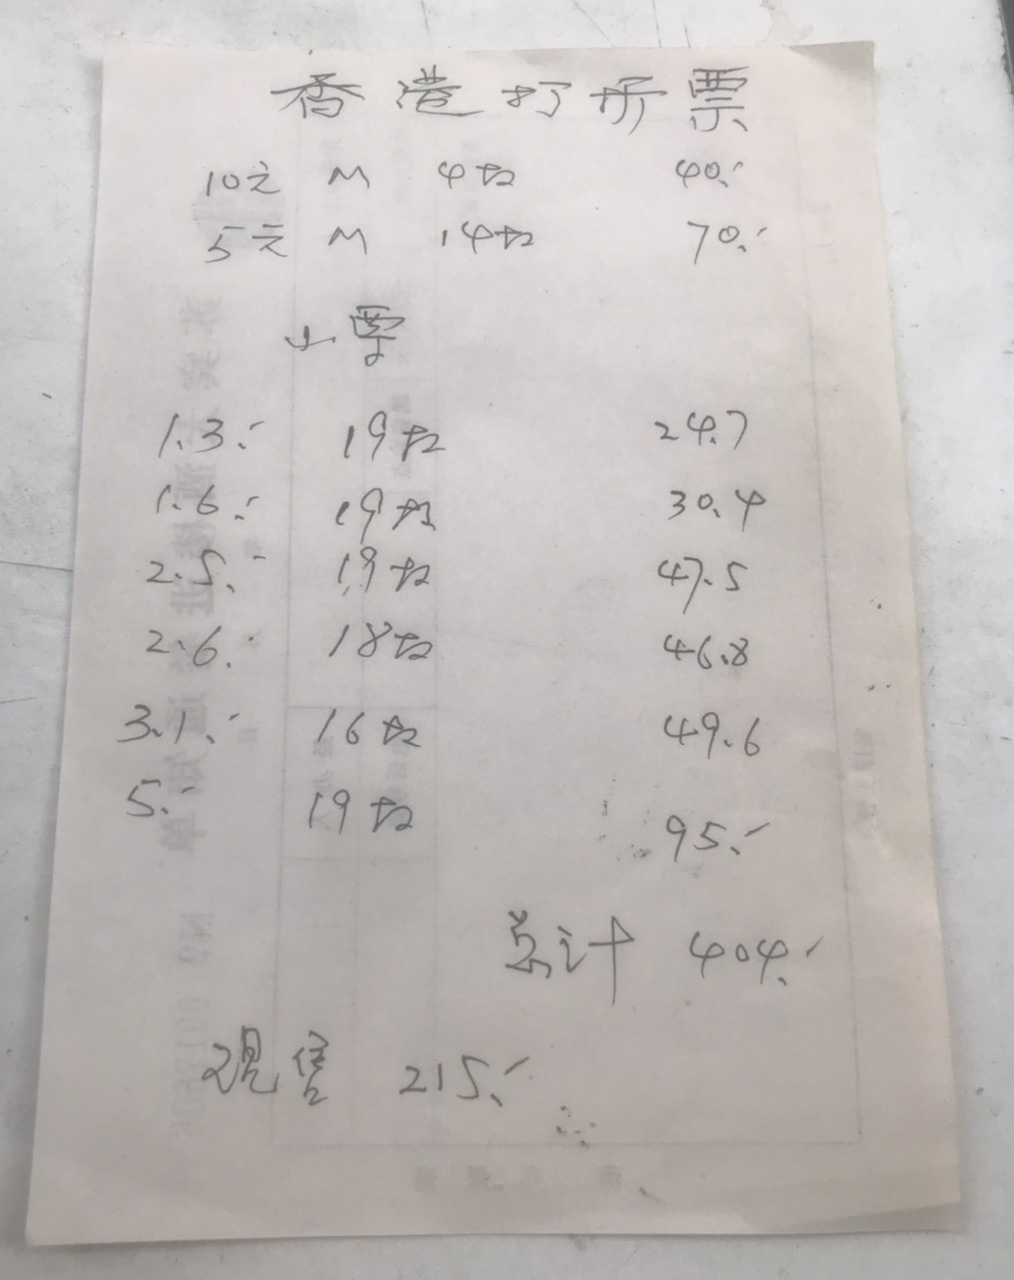 香港打折票
10元 M 4枚 40.-
5元 M 14枚 70.-
小票
1.3.- 19枚 24.7
1.6.- 19枚 30.4
2.5.- 19枚 47.5
2.6.- 18枚 46.8
3.1.- 16枚 49.6
5.- 19枚 95.-
总计 404.-
现售 215.-